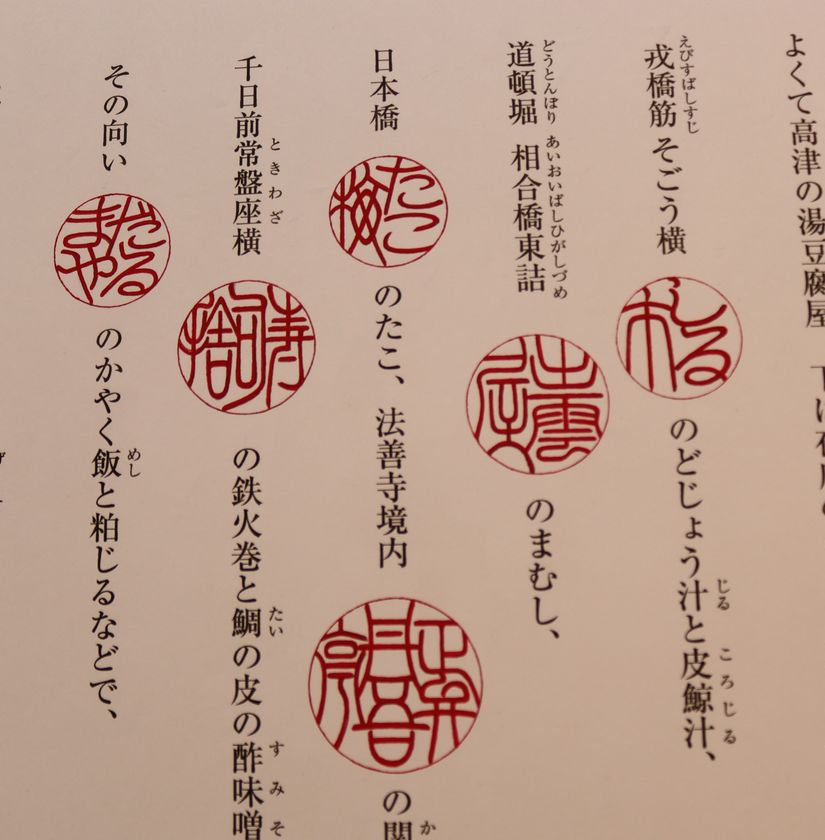 よくて高津の湯豆腐屋
えびすばしすじ じる ころじる
戎橋筋 そごう横 しる市 のどじょう汁と皮鯨汁、
どうとんぼり あいおいばしひがしづめ
道頓堀 相合橋東詰 出雲屋 のまむし、
日本橋 たこ梅 のたこ、法善寺境内 正弁丹吾亭 の
ときわざ たい すみそ
千日前常盤座横 寿司捨 の鉄火巻と鯛の皮の酢味噌
めし
その向い だるまや のかやく飯と粕じるなどで、